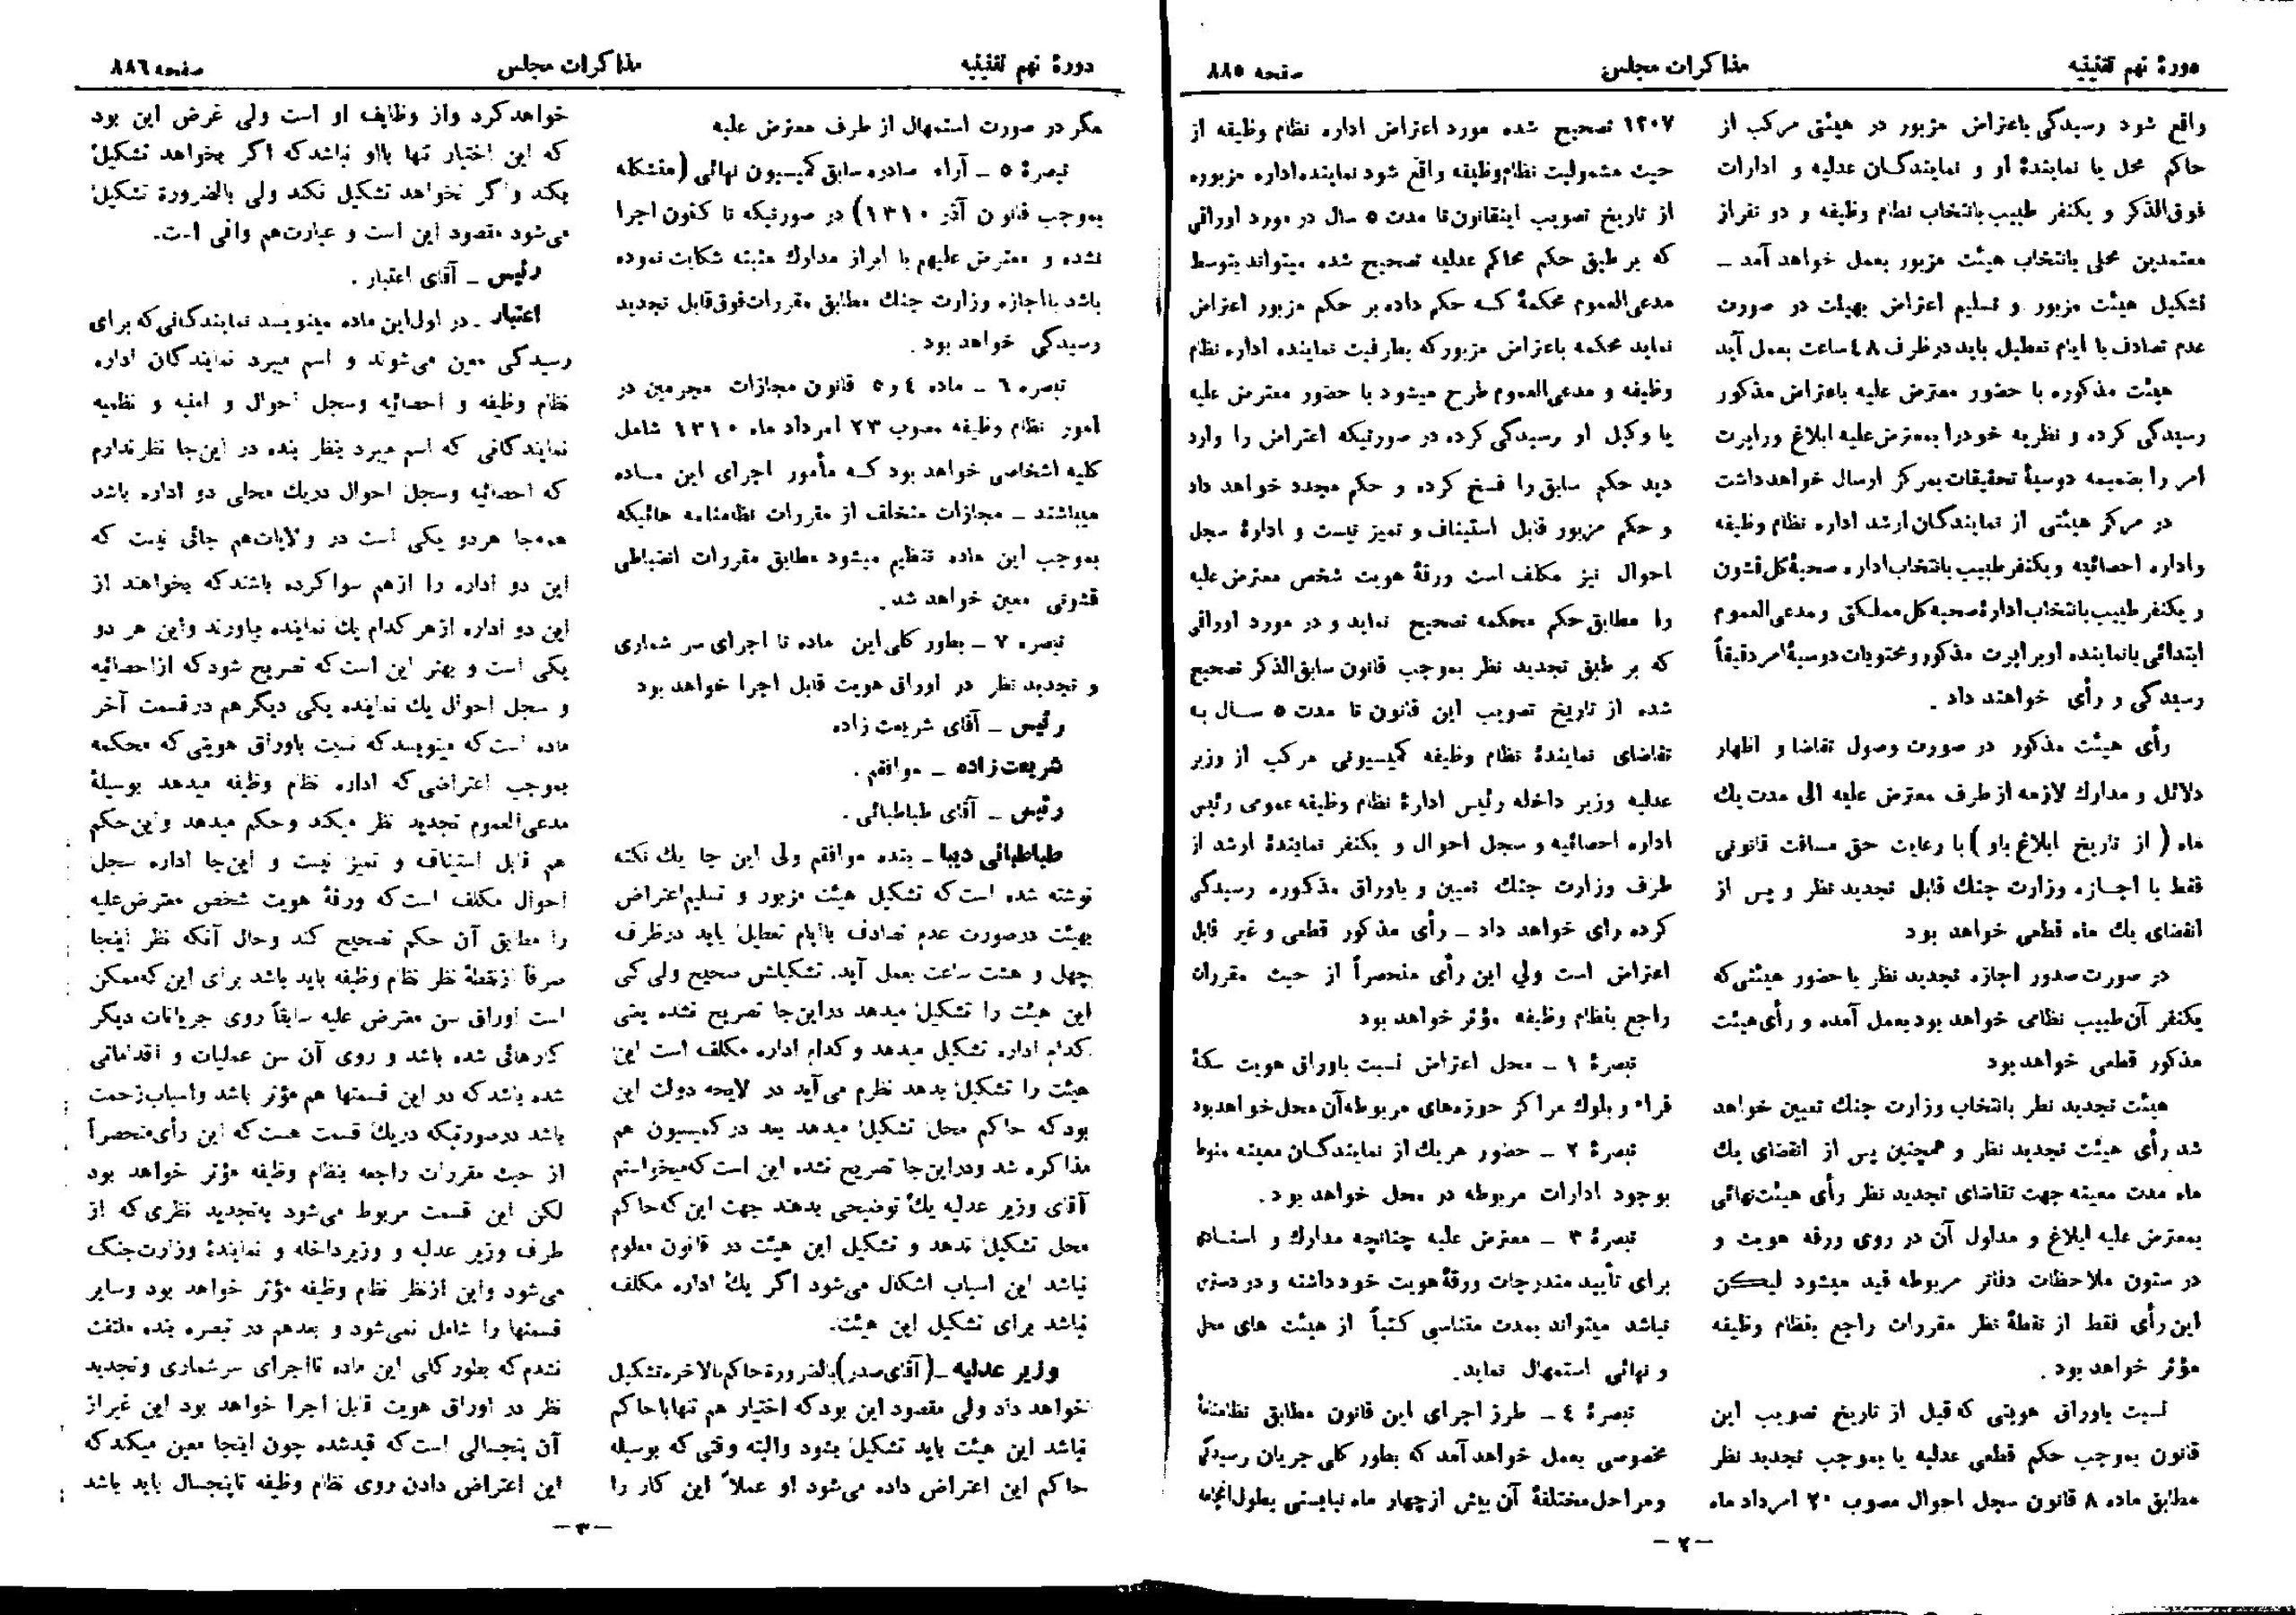 دورهٔ نهم تقنینیه
مذاکرات مجلس
صفحه ۸۸۵
واقع شود رسیدگی باعتراض مزبور در هیئتی مرکب از
حاکم محل یا نمایندهٔ او و نمایندگان عدلیه و ادارات
فوق‌الذکر و یکنفر طبیب بانتخاب نظام وظیفه و دو نفر از
معتمدین محلی بانتخاب هیئت مزبور بعمل خواهد آمد ـ
تشکیل هیئت مزبور و تسلیم اعتراض بهیئت در صورت
عدم تصادف با ایام تعطیل باید در ظرف ۴۸ ساعت بعمل آید
هیئت مذکوره با حضور معترض علیه باعتراض مذکور
رسیدگی کرده و نظریه خود را بمعترض علیه ابلاغ و راپرت
امر را بضمیمه دوسیهٔ تحقیقات بمرکز ارسال خواهد داشت
در مرکز هیئتی از نمایندگان ارشد اداره نظام وظیفه
و اداره احصائیه و یکنفر طبیب بانتخاب اداره صحیهٔ کل قشون
و یکنفر طبیب بانتخاب ادارهٔ صحیه کل مملکتی و مدعی‌العموم
ابتدائی یا نماینده او براپرت مذکور و محتویات دوسیهٔ امر دقیقاً
رسیدگی و رأی خواهند داد .
رأی هیئت مذکور در صورت وصول تقاضا و اظهار
دلائل و مدارک لازمه از طرف معترض علیه الی مدت یک
ماه ( از تاریخ ابلاغ باو ) با رعایت حق مسافت قانونی
فقط با اجازه وزارت جنگ قابل تجدید نظر و پس از
انقضای یک ماه قطعی خواهد بود
در صورت صدور اجازه تجدید نظر با حضور هیئتی که
یکنفر آن طبیب نظامی خواهد بود بعمل آمده و رأی هیئت
مذکور قطعی خواهد بود
هیئت تجدید نظر بانتخاب وزارت جنگ تعیین خواهد
شد رأی هیئت تجدید نظر و همچنین پس از انقضای یک
ماه مدت معینه جهت تقاضای تجدید نظر رأی هیئت نهائی
بمعترض علیه ابلاغ و مدلول آن در روی ورقه هویت و
در ستون ملاحظات دفاتر مربوطه قید میشود لیکن
این رأی فقط از نقطهٔ نظر مقررات راجع بنظام وظیفه
مؤثر خواهد بود .
نسبت باوراق هویتی که قبل از تاریخ تصویب این
قانون بموجب حکم قطعی عدلیه یا بموجب تجدید نظر
مطابق ماده ۸ قانون سجل احوال مصوب ۲۰ امرداد ماه
۱۳۰۷ تصحیح شده مورد اعتراض اداره نظام وظیفه از
حیث مشمولیت نظام وظیفه واقع شود نماینده اداره مزبوره
از تاریخ تصویب اینقانون تا مدت ۵ سال در مورد اوراقی
که بر طبق حکم محاکم عدلیه تصحیح شده میتواند بتوسط
مدعی‌العموم محکمهٔ که حکم داده بر حکم مزبور اعتراض
نماید محکمه باعتراض مزبور که بطرفیت نماینده اداره نظام
وظیفه و مدعی‌العموم طرح میشود با حضور معترض علیه
یا وکیل او رسیدگی کرده در صورتیکه اعتراض را وارد
دید حکم سابق را فسخ کرده و حکم مجدد خواهد داد
و حکم مزبور قابل استیناف و تمیز نیست و ادارهٔ سجل
احوال نیز مکلف است ورقهٔ هویت شخص معترض علیه
را مطابق حکم محکمه تصحیح نماید و در مورد اوراقی
که بر طبق تجدید نظر بموجب قانون سابق‌الذکر تصحیح
شده از تاریخ تصویب این قانون تا مدت ۵ سال به
تقاضای نمایندهٔ نظام وظیفه کمیسیونی مرکب از وزیر
عدلیه وزیر داخله رئیس ادارهٔ نظام وظیفه عمومی رئیس
اداره احصائیه و سجل احوال و یکنفر نمایندهٔ ارشد از
طرف وزارت جنگ تعیین و باوراق مذکوره رسیدگی
کرده رای خواهد داد ـ رأی مذکور قطعی و غیر قابل
اعتراض است ولی این رأی منحصراً از حیث مقررات
راجع بنظام وظیفه مؤثر خواهد بود
تبصرهٔ ۱ ـ محل اعتراض نسبت باوراق هویت سکنهٔ
قراء و بلوک مراکز حوزه‌های مربوطه آن محل خواهد بود
تبصرهٔ ۲ ـ حضور هریک از نمایندگان معینه منوط
بوجود ادارات مربوطه در محل خواهد بود .
تبصرهٔ ۳ ـ معترض علیه چنانچه مدارک و اسنادی
برای تأیید مندرجات ورقهٔ هویت خود داشته و در دسترس
نباشد میتواند بمدت متناسبی کتباً از هیئت های محل
و نهائی استمهال نماید.
تبصرهٔ ۴ ـ طرز اجرای این قانون مطابق نظامنامهٔ
مخصوصی بعمل خواهد آمد که بطور کلی جریان رسیدگی
و مراحل مختلفهٔ آن بیش از چهار ماه نبایستی بطول انجامد
ـ ۲ ـ
دورهٔ نهم تقنینیه
مذاکرات مجلس
صفحه ۸۸۶
مگر در صورت استمهال از طرف معترض علیه
تبصرهٔ ۵ ـ آراء صادره سابق کمیسیون نهائی (متشکله
بموجب قانون آذر ۱۳۱۰) در صورتیکه تا کنون اجرا
نشده و معترض علیهم با ابراز مدارک مثبته شکایت نموده
باشد بااجازه وزارت جنگ مطابق مقررات فوق قابل تجدید
رسیدگی خواهد بود.
تبصره ۶ ـ ماده ۴ و ۵ قانون مجازات مجرمین در
امور نظام وظیفه مصوب ۲۳ امرداد ماه ۱۳۱۰ شامل
کلیه اشخاصی خواهد بود که مأمور اجرای این ماده
میباشند ـ مجازات متخلف از مقررات نظامنامه هائیکه
بموجب این ماده تنظیم میشود مطابق مقررات انضباطی
قشونی معین خواهد شد.
تبصره ۷ ـ بطور کلی این ماده تا اجرای سر شماری
و تجدید نظر در اوراق هویت قابل اجرا خواهد بود
رئیس ـ آقای شریعت زاده
شریعت زاده ـ موافقم .
رئیس ـ آقای طباطبائی .
طباطبائی دیبا ـ بنده موافقم ولی این جا یک نکته
نوشته شده است که تشکیل هیئت مزبور و تسلیم اعتراض
بهیئت درصورت عدم تصادف باایام تعطیل باید درظرف
چهل و هشت ساعت بعمل آید. تشکیلش صحیح ولی کی
این هیئت را تشکیل میدهد دراین‌جا تصریح نشده یعنی
کدام اداره تشکیل میدهد و کدام اداره مکلف است این
هیئت را تشکیل بدهد نظرم می‌آید در لایحه دولت این
بود که حاکم محل تشکیل میدهد بعد در کمیسیون هم
مذاکره شد ودراین‌جا تصریح نشده این است که میخواستم
آقای وزیر عدلیه یک توضیحی بدهند جهت این که حاکم
محل تشکیل ندهد و تشکیل این هیئت در قانون معلوم
نباشد این اسباب اشکال می‌شود اگر یک اداره مکلف
نباشد برای تشکیل این هیئت.
وزیر عدلیه ـ (آقای صدر) بالضروره حاکم بالاخره تشکیل
خواهد داد ولی مقصود این بود که اختیار هم تنها باحاکم
نباشد این هیئت باید تشکیل بشود والبته وقتی که بوسیله
حاکم این اعتراض داده می‌شود او عملاً این کار را
خواهد کرد واز وظایف او است ولی غرض این بود
که این اختیار تنها بااو نباشد که اگر بخواهد تشکیل
بکند واگر نخواهد تشکیل نکند ولی بالضروره تشکیل
می‌شود مقصود این است و عبارت‌هم وافی است.
رئیس ـ آقای اعتبار .
اعتبار ـ در اول این ماده مینویسد نمایندگانی که برای
رسیدگی معین می‌شوند و اسم میبرد نمایندگان اداره
نظام وظیفه و احصائیه وسجل احوال و امنیه و نظمیه
نمایندگانی که اسم میبرد بنظر بنده در این‌جا نظر ندارم
که احصائیه وسجل احوال دریک محلی دو اداره باشد
همه‌جا هردو یکی است در ولایات‌هم جائی نیست که
این دو اداره را ازهم سوا کرده باشند که بخواهند از
این دو اداره ازهر کدام یک نماینده بیاورند واین هر دو
یکی است و بهتر این است که تصریح شود که ازاحصائیه
و سجل احوال یک نماینده یکی دیگر هم درقسمت آخر
ماده است که مینویسد که نسبت باوراق هویتی که محکمه
بموجب اعتراضی که اداره نظام وظیفه میدهد بوسیلهٔ
مدعی‌العموم تجدید نظر میکند وحکم میدهد واین حکم
هم قابل استیناف و تمیز نیست و این‌جا اداره سجل
احوال مکلف است که ورقهٔ هویت شخص معترض‌علیه
را مطابق آن حکم تصحیح کند وحال آنکه نظر اینجا
صرفاً ازنقطهٔ نظر نظام وظیفه باید باشد برای این که‌ممکن
است اوراق سن معترض علیه سابقاً روی جریانات دیگر
کارهائی شده باشد و روی آن سن عملیات و اقداماتی
شده باشد که در این قسمتها هم مؤثر باشد واسباب‌زحمت
باشد درصورتیکه دریک قسمت هست که این رأی‌منحصراً
از حیث مقررات راجعه بنظام وظیفه مؤثر خواهد بود
لکن این قسمت مربوط می‌شود به‌تجدید نظری که از
طرف وزیر عدلیه و وزیرداخله و نمایندهٔ وزارت‌جنگ
می‌شود واین ازنظر نظام وظیفه مؤثر خواهد بود وسایر
قسمتها را شامل نمی‌شود و بعدهم در تبصره بنده ملتفت
نشدم که بطور کلی این ماده تااجرای سرشماری وتجدید
نظر در اوراق هویت قابل اجرا خواهد بود این غیراز
آن پنجسالی است که قیدشده چون اینجا معین میکند که
این اعتراض دادن روی نظام وظیفه تاپنجسال باید باشد
ـ ۳ ـ